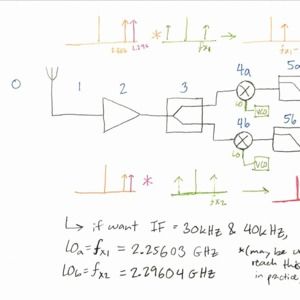 2.256 2.296 * fx1
0 1 2 3 4a 5a
LO VCO
4b 5b
LO VCO
* fx2
↳ if want IF = 30kHz & 40kHz,
LOa = fx1 = 2.25603 GHz *(may be
LOb = fx2 = 2.29604 GHz reach this
in practic